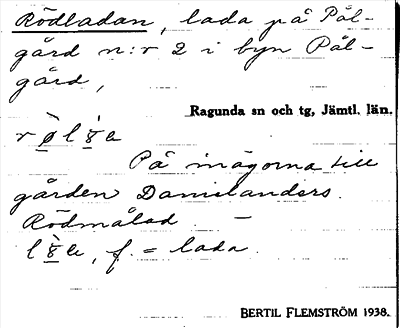 Rödladan, lada på Pål-
gård n:r 2 i byn Pål-
gård,
Ragunda sn och tg, Jämtl. län.
På inägorna till
gården Danielanders.
Rödmålad —
f. = lada.
BERTIL FLEMSTRÖM 1938.